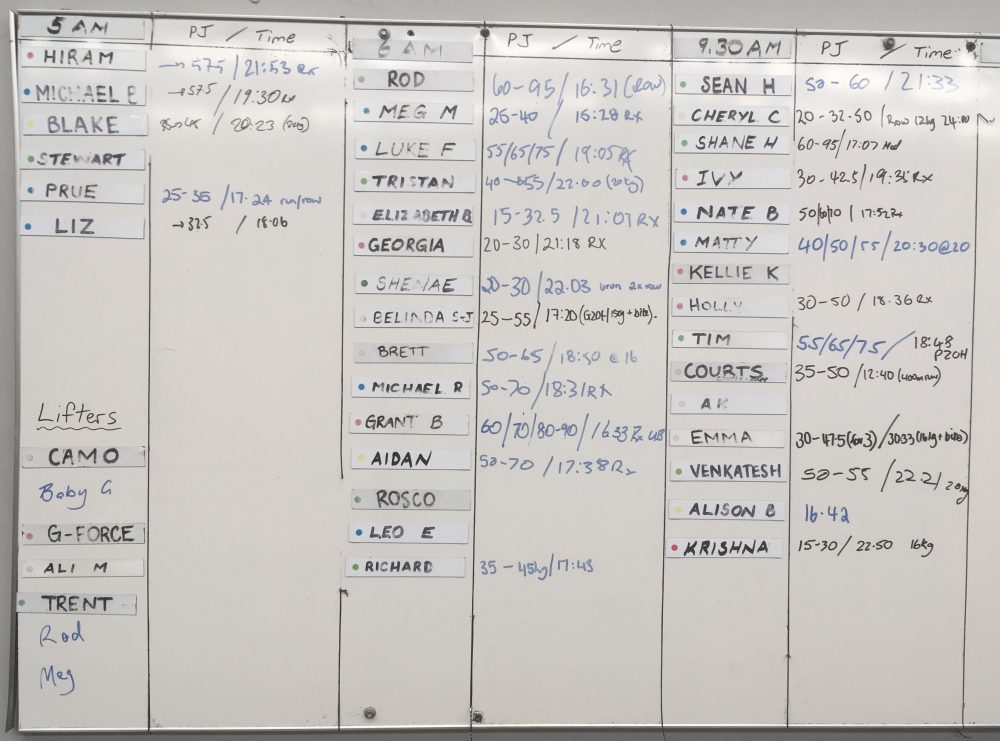 5 AM PJ / Time
HIRAM → 57.5 / 21:53 Rx
MICHAEL B → 57.5 / 19:30 Rx
BLAKE / 20:23 (20kg)
STEWART
PRUE 25-35 / 17.24 run/row
LIZ → 32.5 / 18:06
Lifters
CAMO
Baby G
G-FORCE
ALI M
TRENT
Rod
Meg
6 AM PJ / Time
ROD 60-95 / 16:31 (Row)
MEG M 25-40 / 16:28 RX
LUKE F 55/65/75 / 19:05 RX
TRISTAN 40→55/22:00 (20kg)
ELIZABETH B 15-32.5 / 21:07 RX
GEORGIA 20-30/21:18 RX
SHENAE 20-30/22:03 2x row
BELINDA S-J 25-55/ 17:20 (G2OH/15kg + bike).
BRETT 50-65 / 18:50 @ 16
MICHAEL R 50-70 / 18:31 RX
GRANT B 60/70/80-90/ 16 33 Rx UB
AIDAN 50-70 / 17:38 Rx
ROSCO
LEO E
RICHARD 35-45kg/17:43
9.30 AM PJ / Time
SEAN H 50-60 / 21:33
CHERYL C 20-32.50 / Row 12kg
SHANE H 60-95/17:07
IVY 30-42.5/19:35 Rx
NATE B 50/60/70 / 17:52 Rx
MATTY 40/50/55 / 20:30@20
KELLIE K
HOLLY 30-50 / 18.36 Rx
TIM 55/65/75 / 18:48 P2OH
COURTS 35-50/12:40 (400m run)
AK
EMMA 30-47.5 /3033 (16kg + bike)
VENKATESH 50-55 / 22.21 20kg
ALISON B 16.42
KRISHNA 15-30/ 22.50 16kg